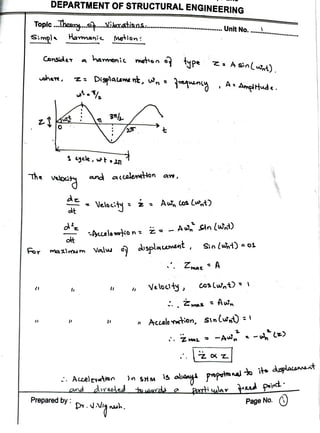 DEPARTMENT OF STRUCTURAL ENGINEERING
Topic Theory of Vibrations. Unit No. 1
Simple Harmonic Motion:
Consider a harmonic motion of type z = A sin(ωnt)
where, z = Displacement, ωn = frequency, A = Amplitude.
ωt = π/2
z ωt 3π/2
0 2π t
1 cycle, ωt = 2π
The velocity and acceleration are,
dz/dt = Velocity = ż = Aωn cos(ωnt)
d²z/dt² = Acceleration = z̈ = - Aωn² sin(ωnt)
For maximum value of displacement, sin(ωnt) = 01
∴ Zmax = A
" " " Velocity, cos(ωnt) = 1
∴ Żmax = Aωn
" " " Acceleration, sin(ωnt) = 1
∴ Z̈max = -Aωn² = -ωn²(z)
∴ z̈ ∝ z
∴ Acceleration in SHM is always propotional to its displacement
and directed towards a particular fixed point.
Prepared by : Dr. J. Vignesh. Page No. 1